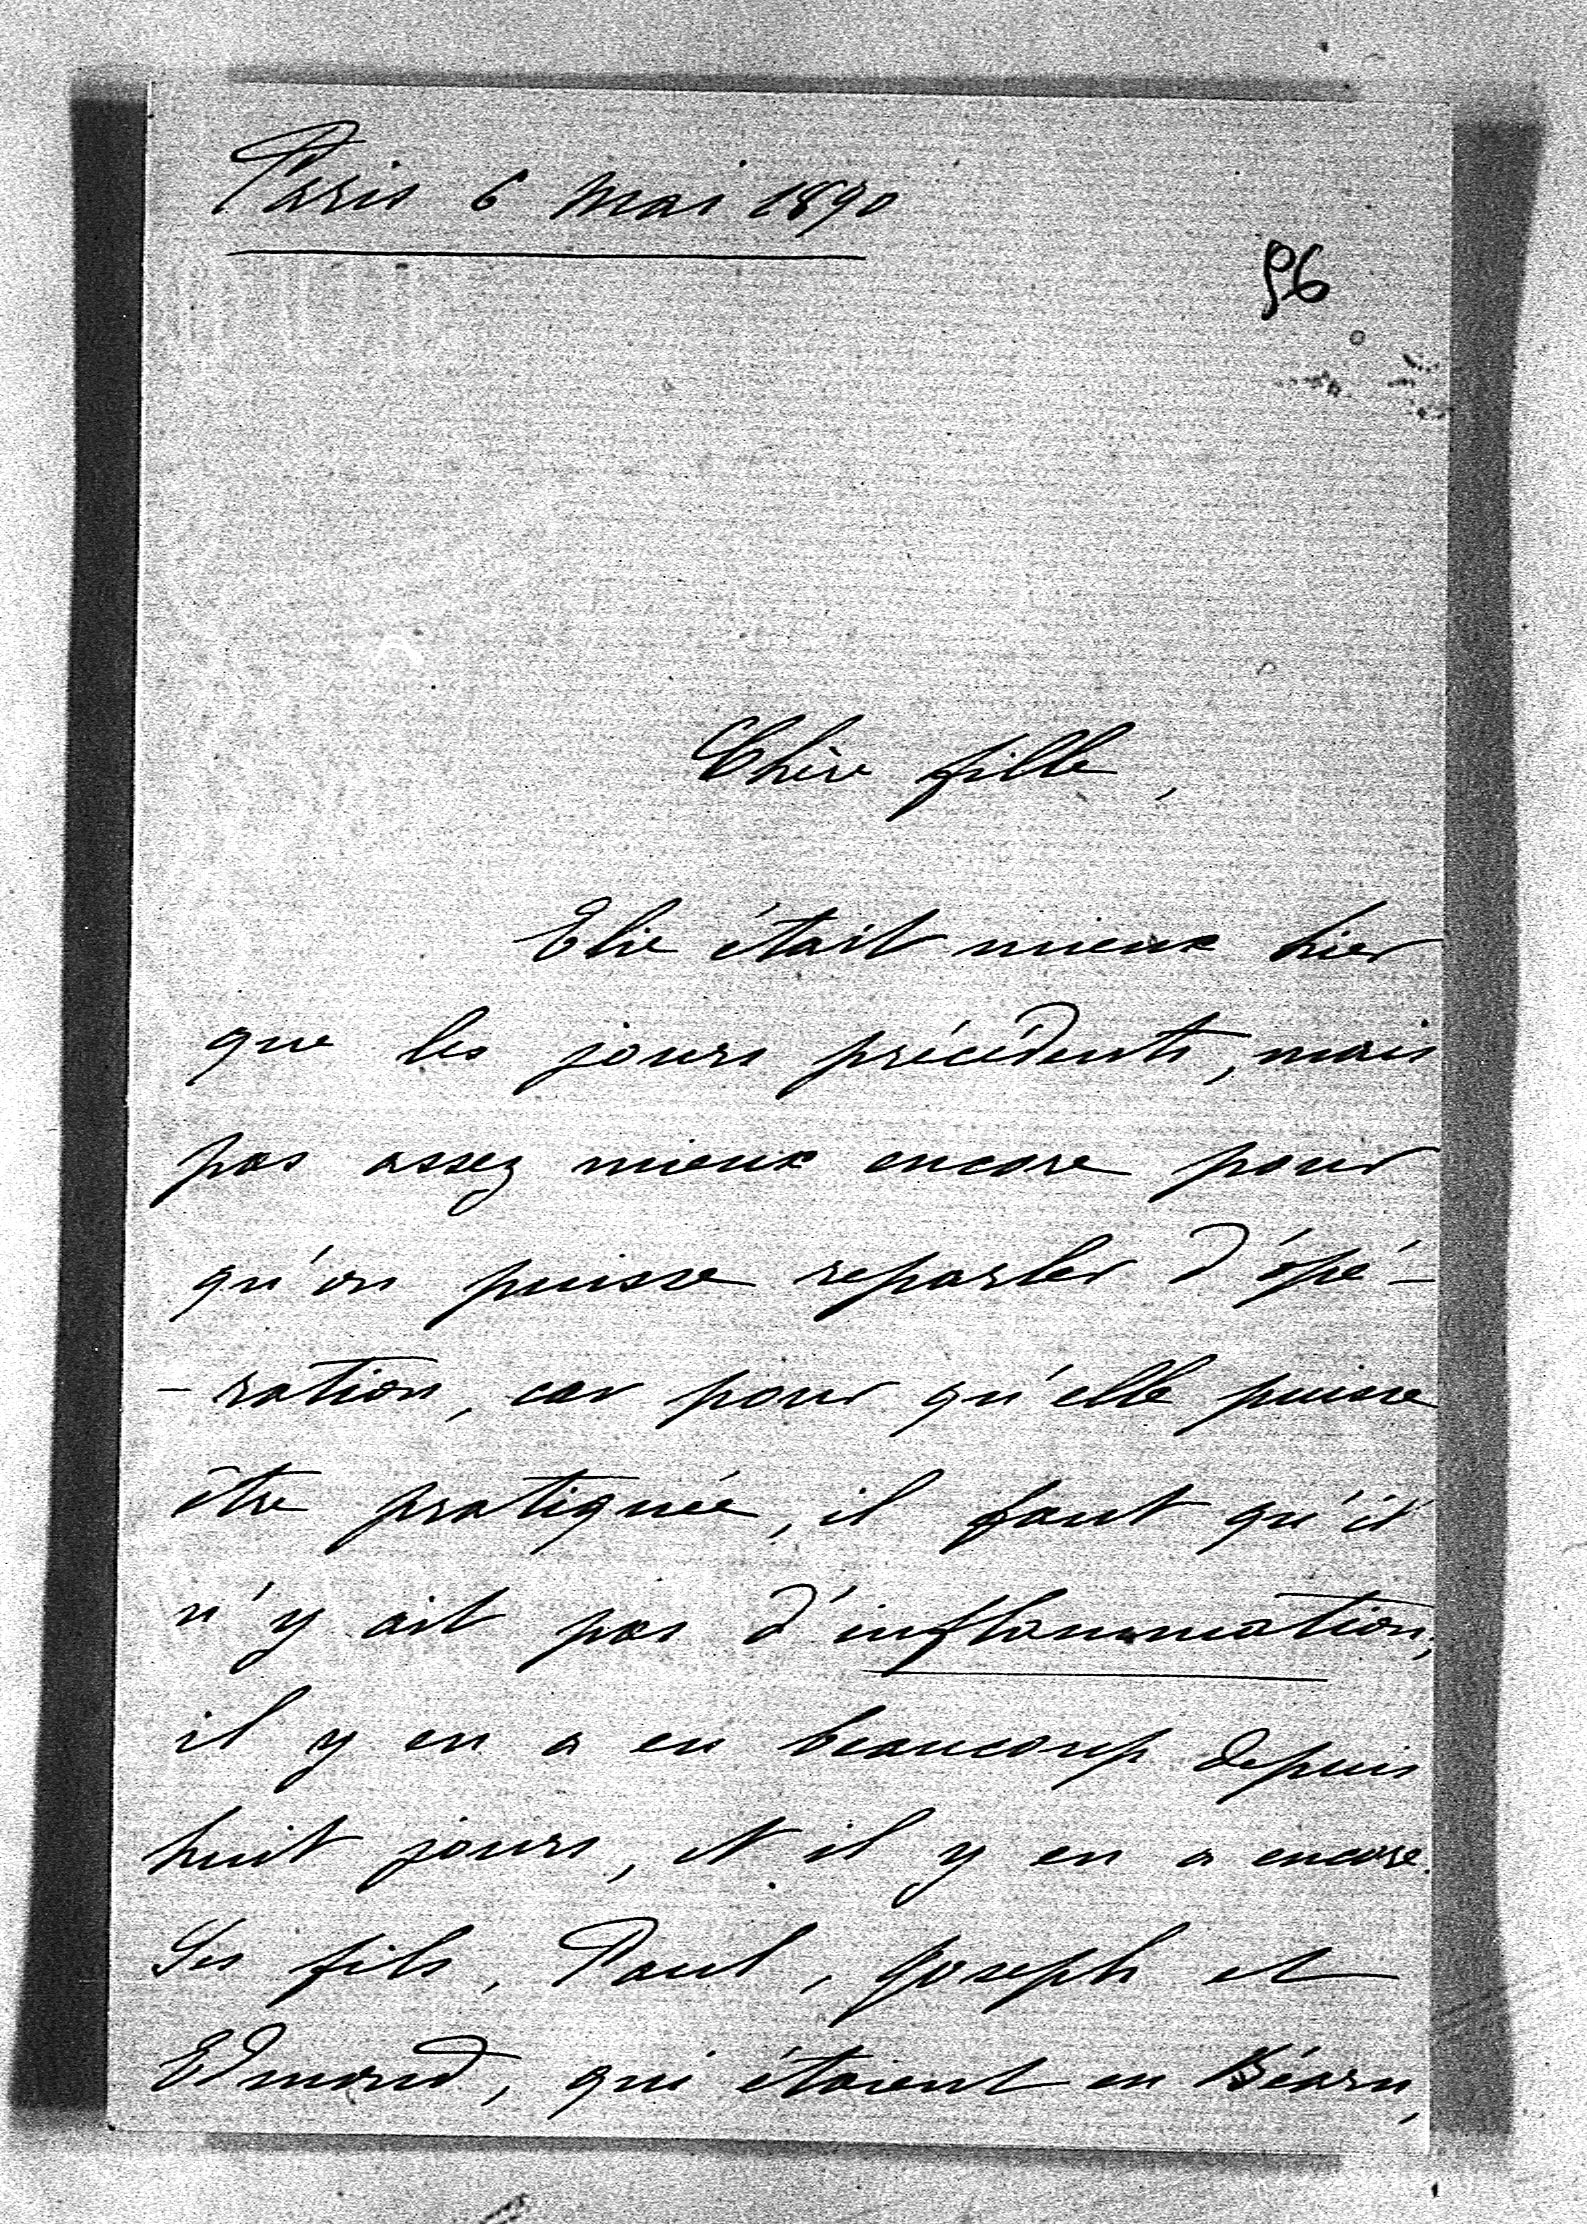 Paris 6 mai 1890
96
Chère fille,
Elie était mieux hier
que les jours précédents, mais
pas assez mieux encore pour
qu'on puisse reparler d'opé-
-ration, car pour qu'elle puisse
être pratiquée, il faut qu'il
n'y ait pas d'inflammation;
il y en a eu beaucoup depuis
huit jours, et il y en a encore.
Ses fils, Paul, Joseph et
Edmond, qui étaient en Béarn,